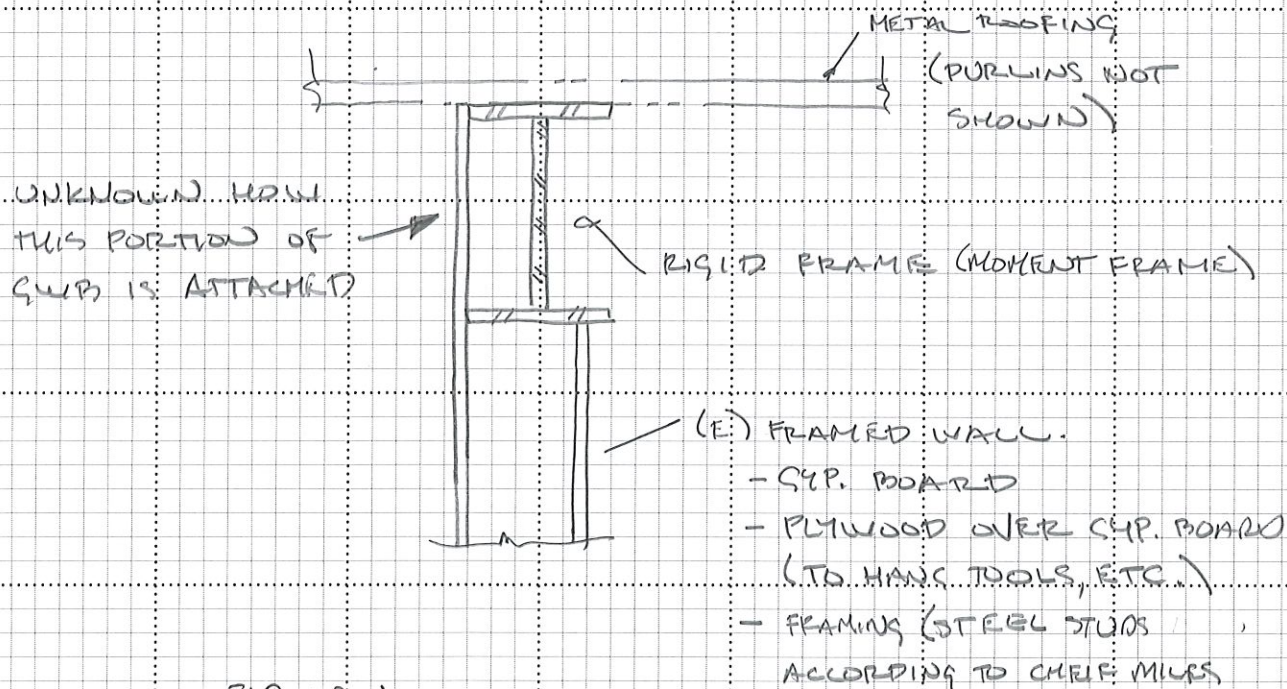 METAL ROOFING
(PURLINS NOT
SHOWN)
UNKNOWN HOW
THIS PORTION OF
GWB IS ATTACHED
RIGID FRAME (MOMENT FRAME)
(E) FRAMED WALL.
- GYP. BOARD
- PLYWOOD OVER GYP. BOARD
(TO HANG TOOLS, ETC.)
- FRAMING (STEEL STUDS
ACCORDING TO CHEIF MILES